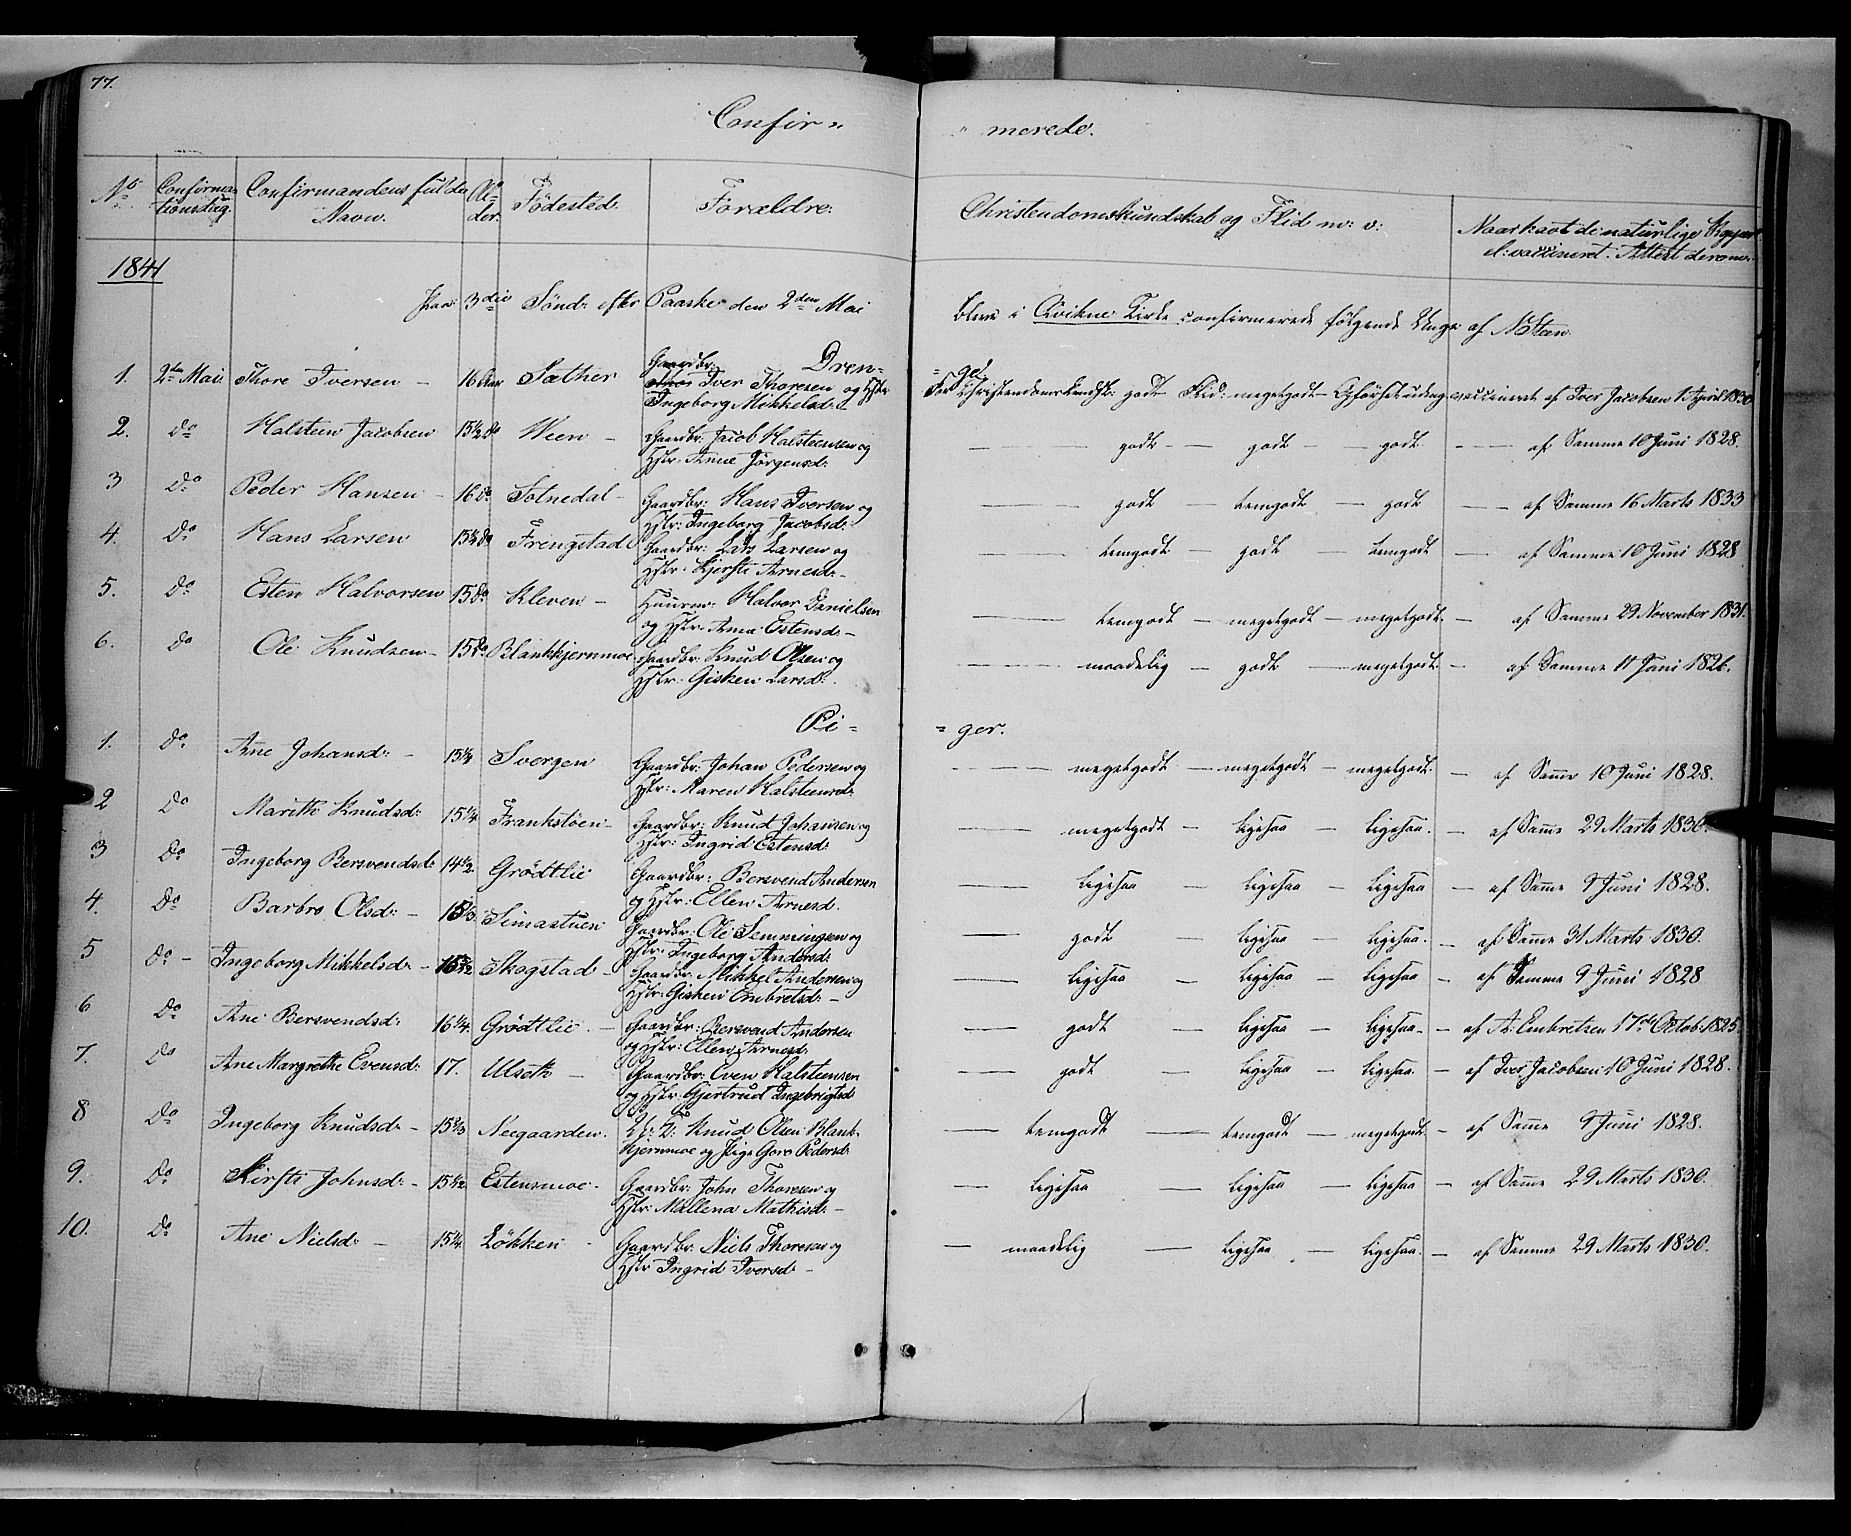 77.
Confir = = merede.
No Confirmationsdag. Confirmandens fulde Navn. Alder. Födested. Forældre. Christendomskundskab og Flid m: v: Naar havt de naturlige Kopper el: vaccineret. Attest derom.
1841
Paa 3die Sönd: efter Paaske den 2den Mai bleve i Qvikne Kirke confirmerede fölgende Unge af NSteen.
Dren= =ge.
1. 2den Mai Thore Iversen – 16 Aar Sæther Gaardbr: Iver Thoresen og Hstr: Ingeborg Mikkelsd: For Christendomskundsk: godt Flid: megetgodt Opförsel: vaccineret af Iver Jacobsen 1 April 1830
2. do Halsteen Jacobsen 15½ do Ween – Gaardbr: Jacob Halsteensen og Hstr: Anne Jörgensd: — godt — godt — godt — af Samme 10 Juni 1828.
3 do Peder Hansen – 16 do Sotnedal – Gaardbr: Hans Iversen og Hstr: Ingeborg Jacobsd: — godt — temgodt — godt — af Samme 16 Marts 1833
4. do Hans Larsen do Frengstad Gaardbr: Lars Larsen og Hstr: Kjersti Arnesd: – — temgodt — godt — temgodt — af Samme 10 Juni 1828
5. do Esten Halvorsen 15 do Kleven – Huusm: Halvor Danielsen og Hstr: Anne Estensd: – — temgodt — megetgodt — megetgodt — af Samme 29 November 1831.
6. do Ole Knudsen – 15 do Blankkjernmoe Gaardbr: Knud Olsen og Hstr: Gisken Larsd: — maadelig — godt — megetgodt — af Samme 11 Juni 1826.
Pi= =ger.
1. do Ane Johansd: – 15¼ Svergen Gaardbr: Johan Pedersen og Hstr: Maren Halsteensd: — megetgodt — megetgodt — megetgodt — af Samme 10 Juni 1828.
2 do Marithe Knudsd: 15¼ Frankstöen – Gaardbr: Knud Johansen og Hstr: Ingrid Estensd: — megetgodt — ligesaa — ligesaa — af Samme 29 Marts 1830.
3 do Ingeborg Bersvendsd: 14½ Grödtlie Gaardbr: Bersvend Andersen og Hstr: Ellen Arnesd. — ligesaa — ligesaa — ligesaa — af Samme 9 Juni 1828.
4. do Barbro Olsd: – Simastuen Gaardbr: Ole Semmingsen og Hstr: Ingeborg Andersd: — godt — ligesaa — ligesaa — af Samme 31 Marts 1830.
5 do – Ingeborg Mikkelsd: – Skogstad – Gaardbr: Mikkel Andersen og Hstr: Gisken Embretsd: – — ligesaa — ligesaa — ligesaa — af Samme 9 Juni 1828
6 do Ane Bersvendsd: 16¼. Grödtlie – Gaardbr: Bersvend Andersen og Hstr: Ellen Arnesd: — godt — ligesaa — ligesaa — af A: Embretsen 17de Octob: 1825.
7. do Ane Margrethe Evensd: 17. Ulseth – Gaardbr: Even Halsteensen og Hstr: Gjertrud Ingebrigtsd: — godt — ligesaa — ligesaa — af Iver Jacobsen 10 Juni 1828.
8 do Ingeborg Knudsd: – 15⅔ Neegaarden. Knud Olsen Blankkjernmoe og Pige Goro Pedersd: — temgodt — temgodt — megetgodt — af Samme 9 Juni 1828.
9. do Kirsti Johnsd: – Estensmoe. Gaardbr: John Thoresen og Hstr: Mallena Mathisd: – — ligesaa — ligesaa — ligesaa — af Samme 29 Marts 1830.
10. do Ane Nielsd: – 15¼ Lökken – Gaardbr: Niels Thoresen og Hstr: Ingrid Iversd: – — maadelig — ligesaa — ligesaa — af Samme 29 Marts 1830.